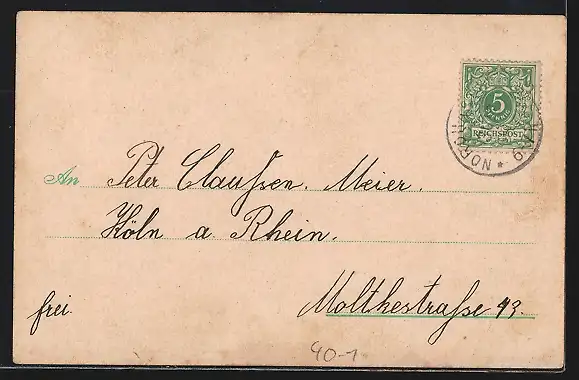 5
PFENNIG
REICHSPOST
An Peter Claußsen. Meier.
Köln a. Rhein.
frei. Molthestraße 43.
40-1